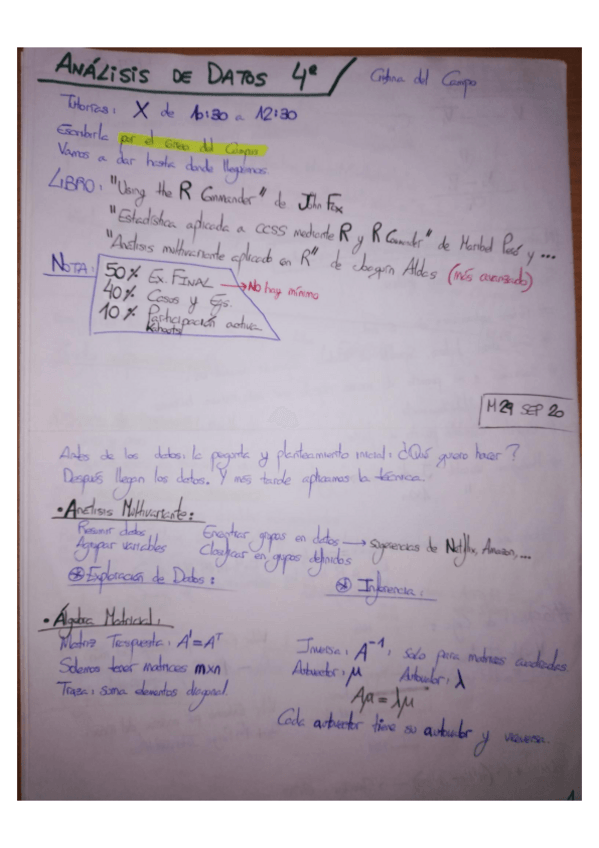 ANÁLISIS DE DATOS 4º
Cristina del Campo
Tutorías: X de 10:30 a 12:30
Escribirla por el correo del Campus
Vamos a dar hasta donde lleguemos
LIBRO: "Using the R Commander" de John Fox
"Estadística aplicada a CCSS mediante R y R Commander" de Maribel Peró y ...
"Análisis multivariante aplicado en R" de Joaquín Aldas (más avanzado)
NOTA:
50% Ex. FINAL → No hay mínimo
40% Casos y Ejs.
10% Participación activa
Kahoots
M 29 SEP 20
Antes de los datos: la pregunta y planteamiento inicial: ¿Qué quiero hacer?
Después llegan los datos. Y más tarde aplicamos la técnica.
• Análisis Multivariante:
Resumir datos
Agrupar variables
Encontrar grupos en datos → sugerencias de Netflix, Amazon, ...
Clasificar en grupos definidos
⊛ Exploración de Datos:
⊛ Inferencia:
• Álgebra Matricial:
Matriz Traspuesta: A' = Aᵀ
Solemos tener matrices m×n
Traza: suma elementos diagonal
Inversa: A⁻¹, solo para matrices cuadradas.
Autovector: μ Autovalor: λ
Aμ = λμ
Cada autovector tiene su autovalor y viceversa.
1